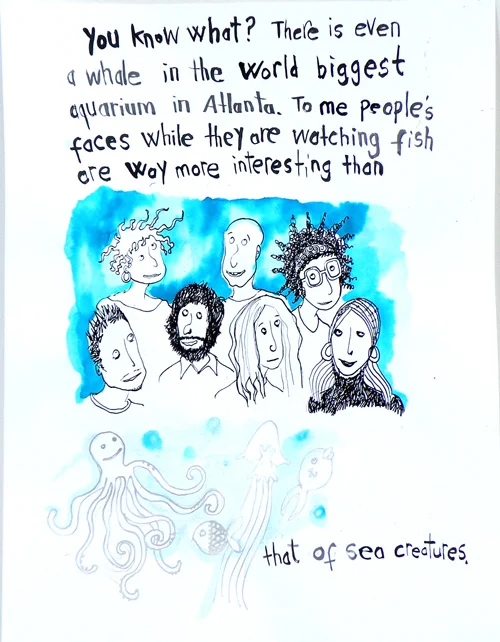 You know what? There is even
a whale in the world biggest
aquarium in Atlanta. To me people's
faces while they are watching fish
are way more interesting than
that of sea creatures.